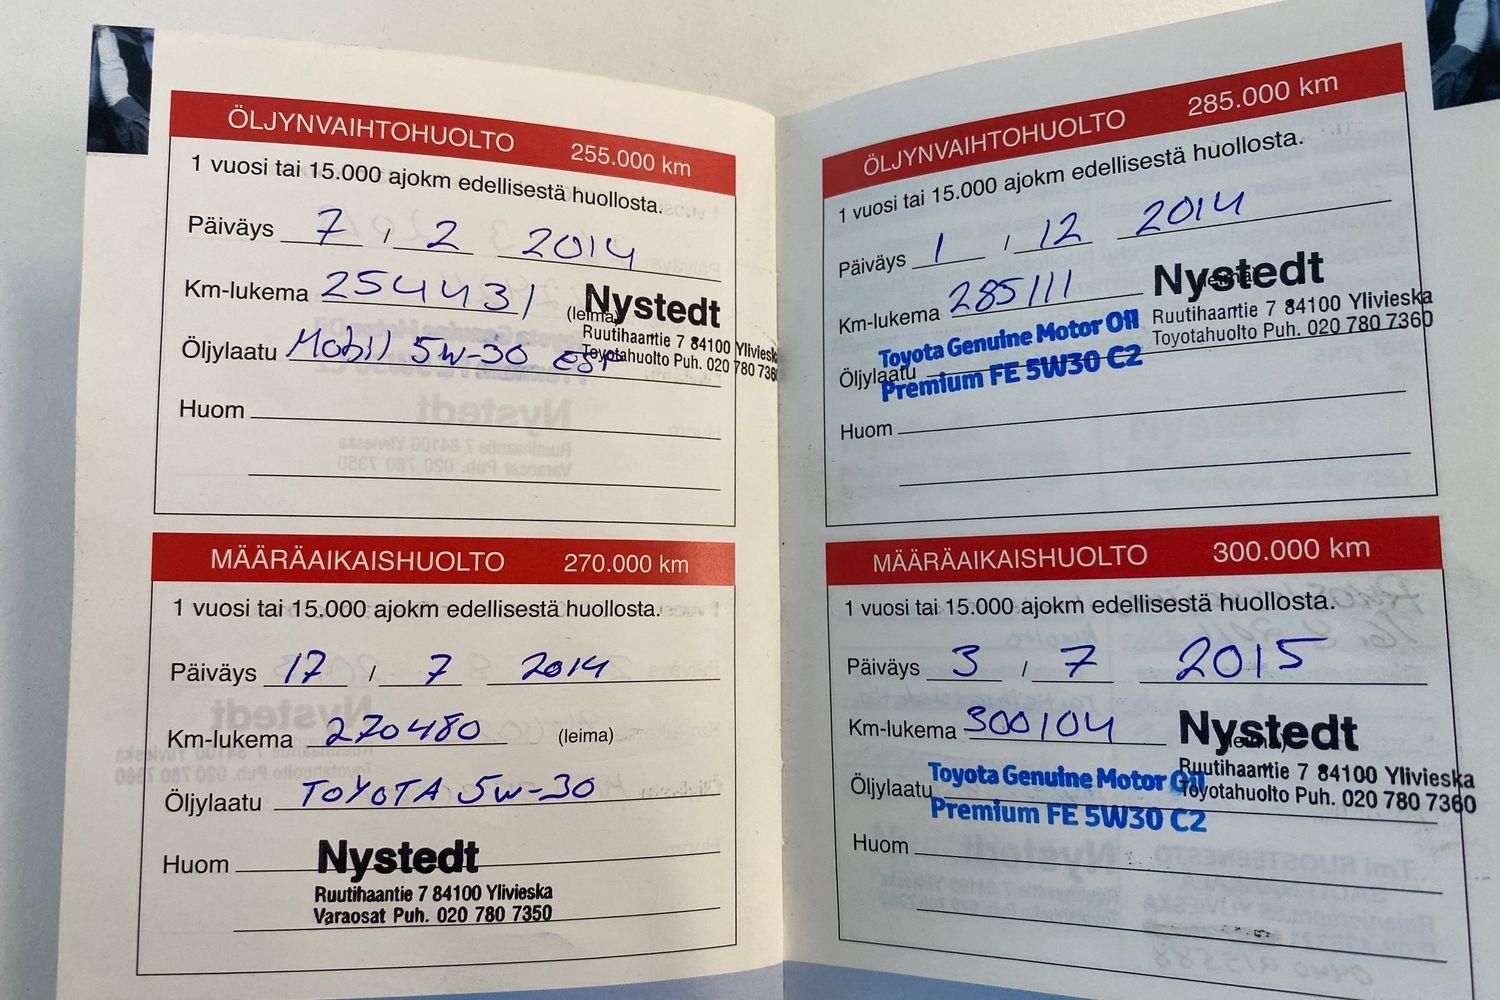 ÖLJYNVAIHTOHUOLTO 255.000 km
1 vuosi tai 15.000 ajokm edellisestä huollosta.
Päiväys 7 / 2 2014
Km-lukema 254431 (leima)
Nystedt
Ruutihaantie 7 84100 Ylivieska
Toyotahuolto Puh. 020 780 7360
Öljylaatu Mobil 5W-30 ESP
Huom
MÄÄRÄAIKAISHUOLTO 270.000 km
1 vuosi tai 15.000 ajokm edellisestä huollosta.
Päiväys 17 / 7 2014
Km-lukema 270480 (leima)
Öljylaatu TOYOTA 5W-30
Huom
Nystedt
Ruutihaantie 7 84100 Ylivieska
Varaosat Puh. 020 780 7350
ÖLJYNVAIHTOHUOLTO 285.000 km
1 vuosi tai 15.000 ajokm edellisestä huollosta.
Päiväys 1 / 12 2014
Km-lukema 285111 (leima)
Nystedt
Ruutihaantie 7 84100 Ylivieska
Toyotahuolto Puh. 020 780 7360
Öljylaatu Toyota Genuine Motor Oil
Premium FE 5W30 C2
Huom
MÄÄRÄAIKAISHUOLTO 300.000 km
1 vuosi tai 15.000 ajokm edellisestä huollosta.
Päiväys 3 / 7 2015
Km-lukema 300104 (leima)
Nystedt
Ruutihaantie 7 84100 Ylivieska
Toyotahuolto Puh. 020 780 7360
Öljylaatu Toyota Genuine Motor Oil
Premium FE 5W30 C2
Huom